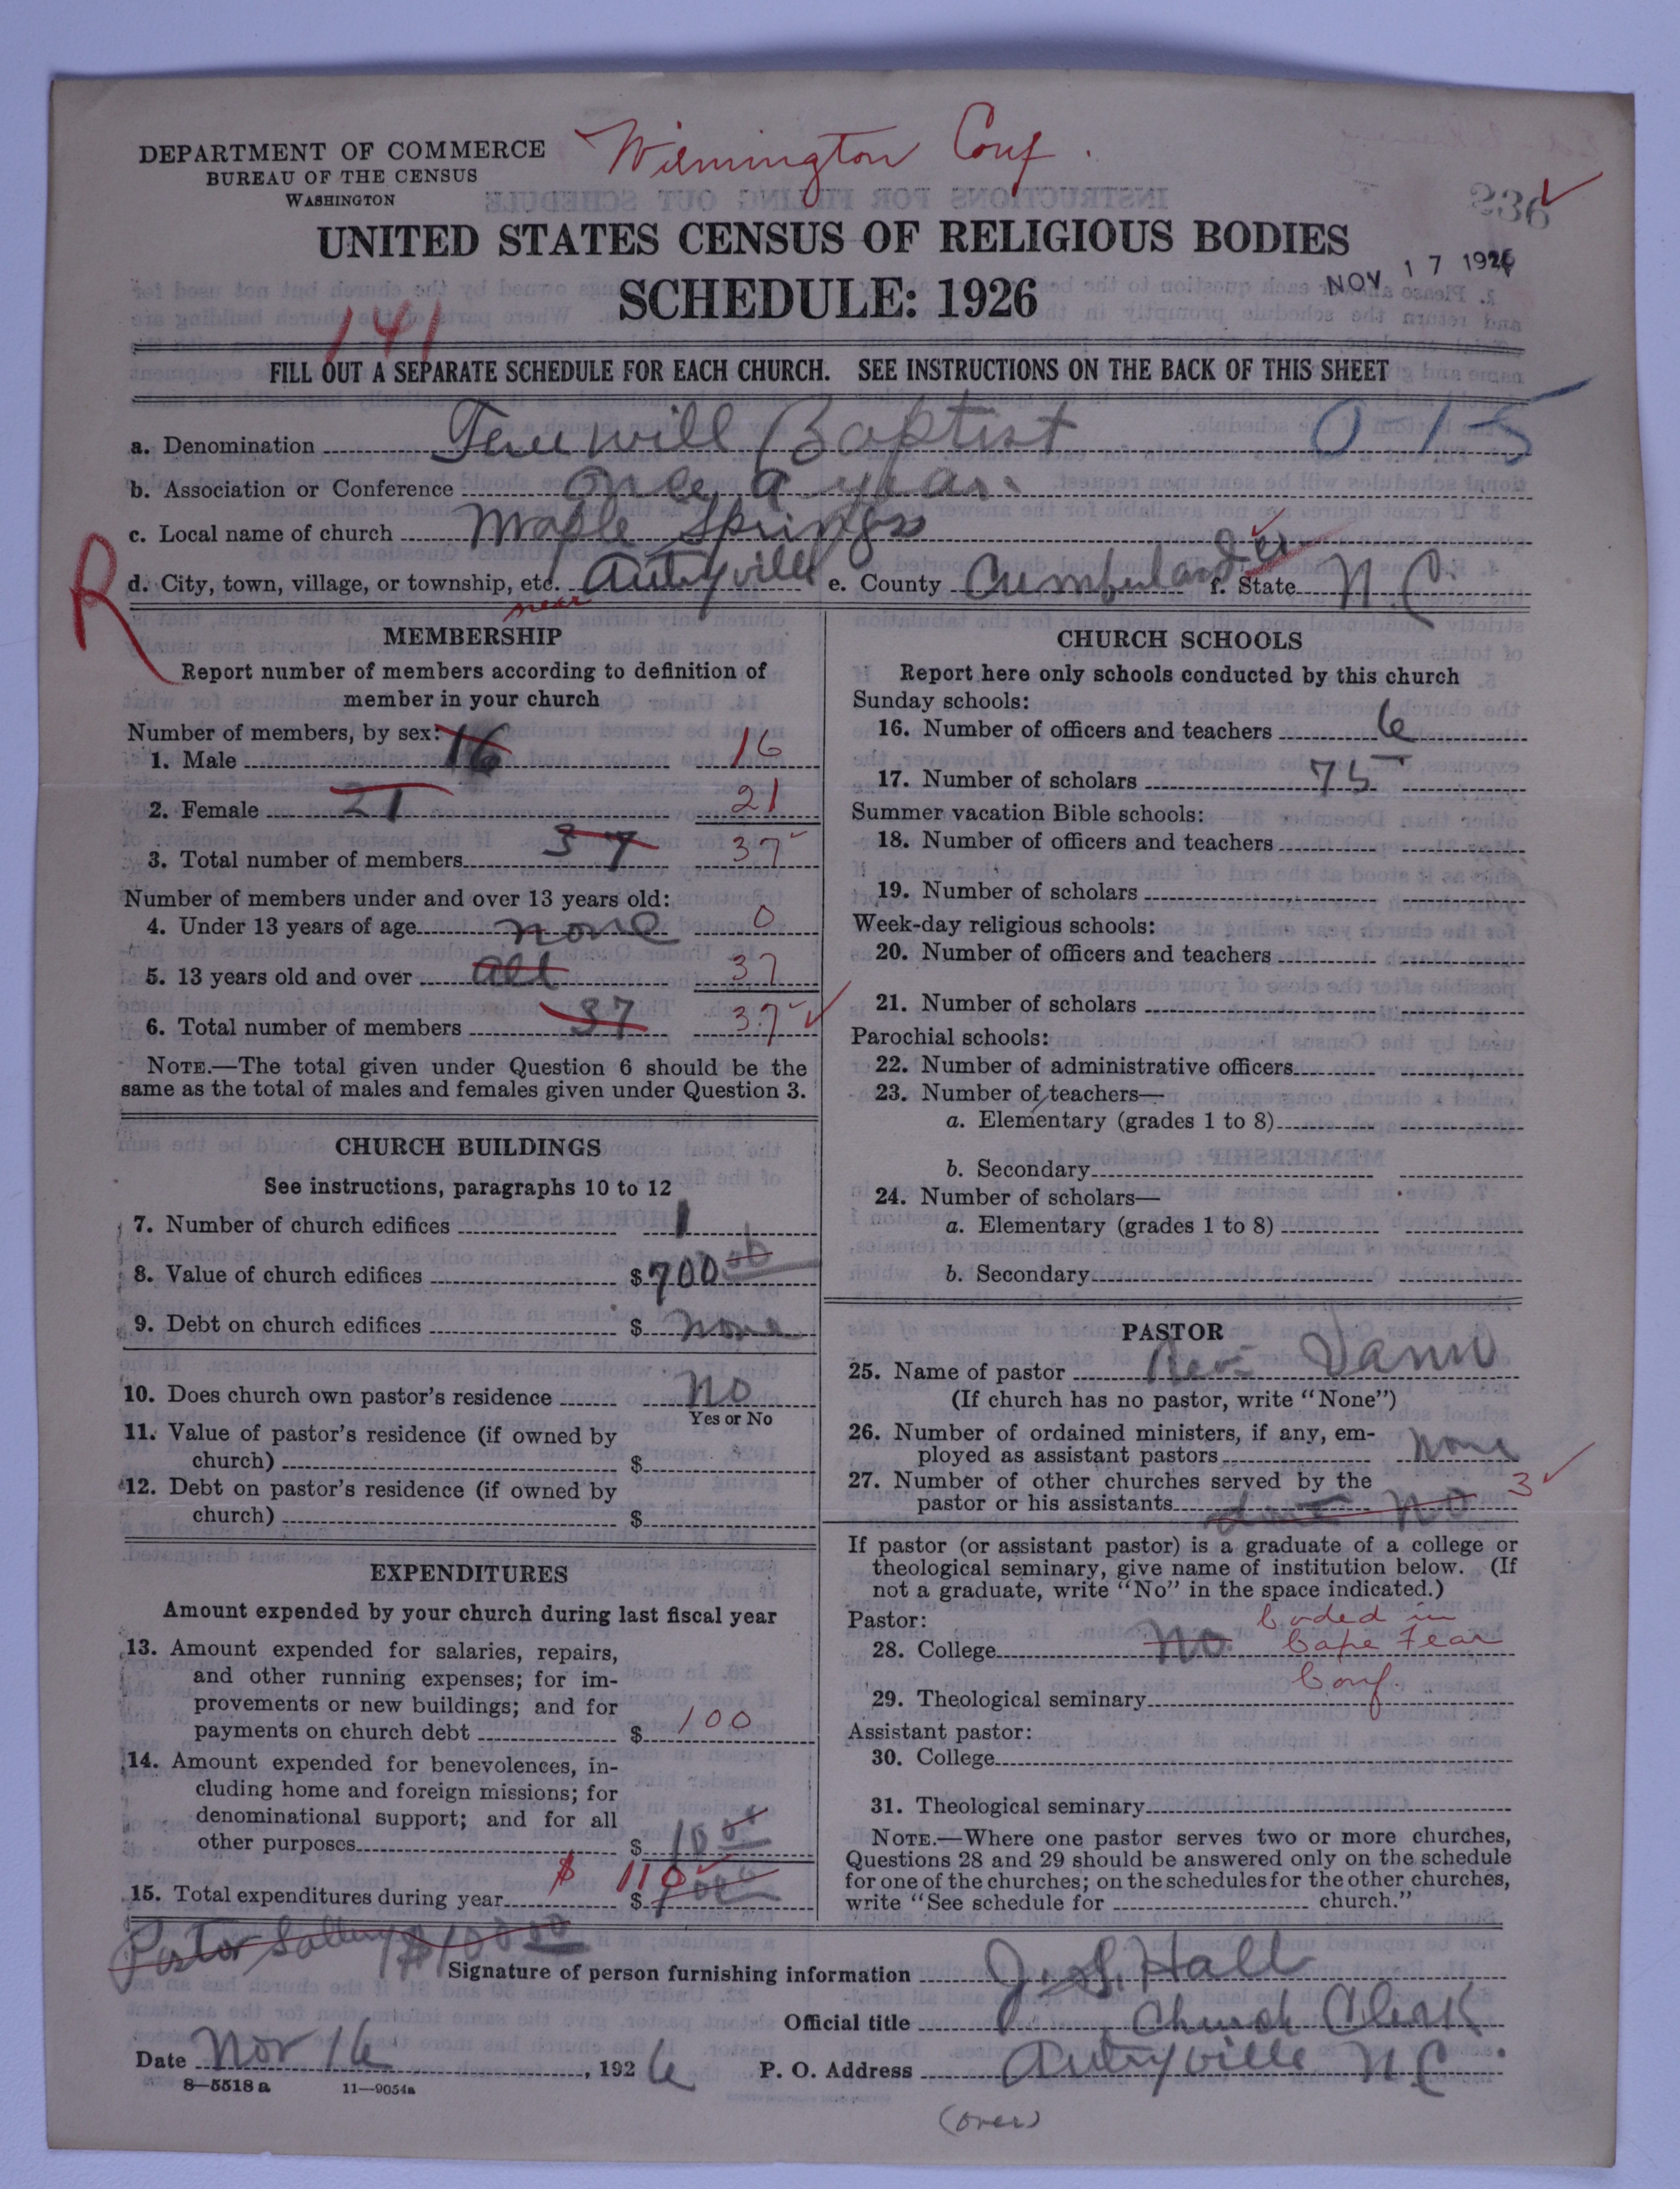 Wilmington Conf.
DEPARTMENT OF COMMERCE
BUREAU OF THE CENSUS
WASHINGTON
236
UNITED STATES CENSUS OF RELIGIOUS BODIES
SCHEDULE: 1926
NOV 17 1926
141
FILL OUT A SEPARATE SCHEDULE FOR EACH CHURCH. SEE INSTRUCTIONS ON THE BACK OF THIS SHEET
a. Denomination will Baptist 0-15
b. Association or Conference once a year.
c. Local name of church Maple Springs
R
d. City, town, village, or township, etc. near Autryville e. County Cumberland f. State N.C.
MEMBERSHIP
Report number of members according to definition of
member in your church
Number of members, by sex:
1. Male 16 16
2. Female 21 21
3. Total number of members 37 37
Number of members under and over 13 years old:
4. Under 13 years of age none 0
5. 13 years old and over all 37
6. Total number of members 37 37
NOTE.—The total given under Question 6 should be the
same as the total of males and females given under Question 3.
CHURCH BUILDINGS
See instructions, paragraphs 10 to 12
7. Number of church edifices 1
8. Value of church edifices $ 700 00
9. Debt on church edifices $ none
10. Does church own pastor's residence No
Yes or No
11. Value of pastor's residence (if owned by
church) $
12. Debt on pastor's residence (if owned by
church) $
EXPENDITURES
Amount expended by your church during last fiscal year
13. Amount expended for salaries, repairs,
and other running expenses; for im-
provements or new buildings; and for
payments on church debt $ 100
14. Amount expended for benevolences, in-
cluding home and foreign missions; for
denominational support; and for all
other purposes $ 10 00
$ 110
15. Total expenditures during year $
CHURCH SCHOOLS
Report here only schools conducted by this church
Sunday schools:
16. Number of officers and teachers 6
17. Number of scholars 75
Summer vacation Bible schools:
18. Number of officers and teachers
19. Number of scholars
Week-day religious schools:
20. Number of officers and teachers
21. Number of scholars
Parochial schools:
22. Number of administrative officers
23. Number of teachers—
a. Elementary (grades 1 to 8)
b. Secondary
24. Number of scholars—
a. Elementary (grades 1 to 8)
b. Secondary
PASTOR
25. Name of pastor Rev. Vann
(If church has no pastor, write "None")
26. Number of ordained ministers, if any, em-
ployed as assistant pastors none
27. Number of other churches served by the
pastor or his assistants No 3
If pastor (or assistant pastor) is a graduate of a college or
theological seminary, give name of institution below. (If
not a graduate, write "No" in the space indicated.)
Pastor:
28. College No. Coded in
Cape Fear
Conf.
29. Theological seminary
Assistant pastor:
30. College
31. Theological seminary
NOTE.—Where one pastor serves two or more churches,
Questions 28 and 29 should be answered only on the schedule
for one of the churches; on the schedules for the other churches,
write "See schedule for church."
Pastor Sallery $100 00
Signature of person furnishing information J. S. Hall
Official title Church Clerk
Date Nov 16, 1926 P. O. Address Autryville N.C.
8—5518 a 11—9054a
(over)